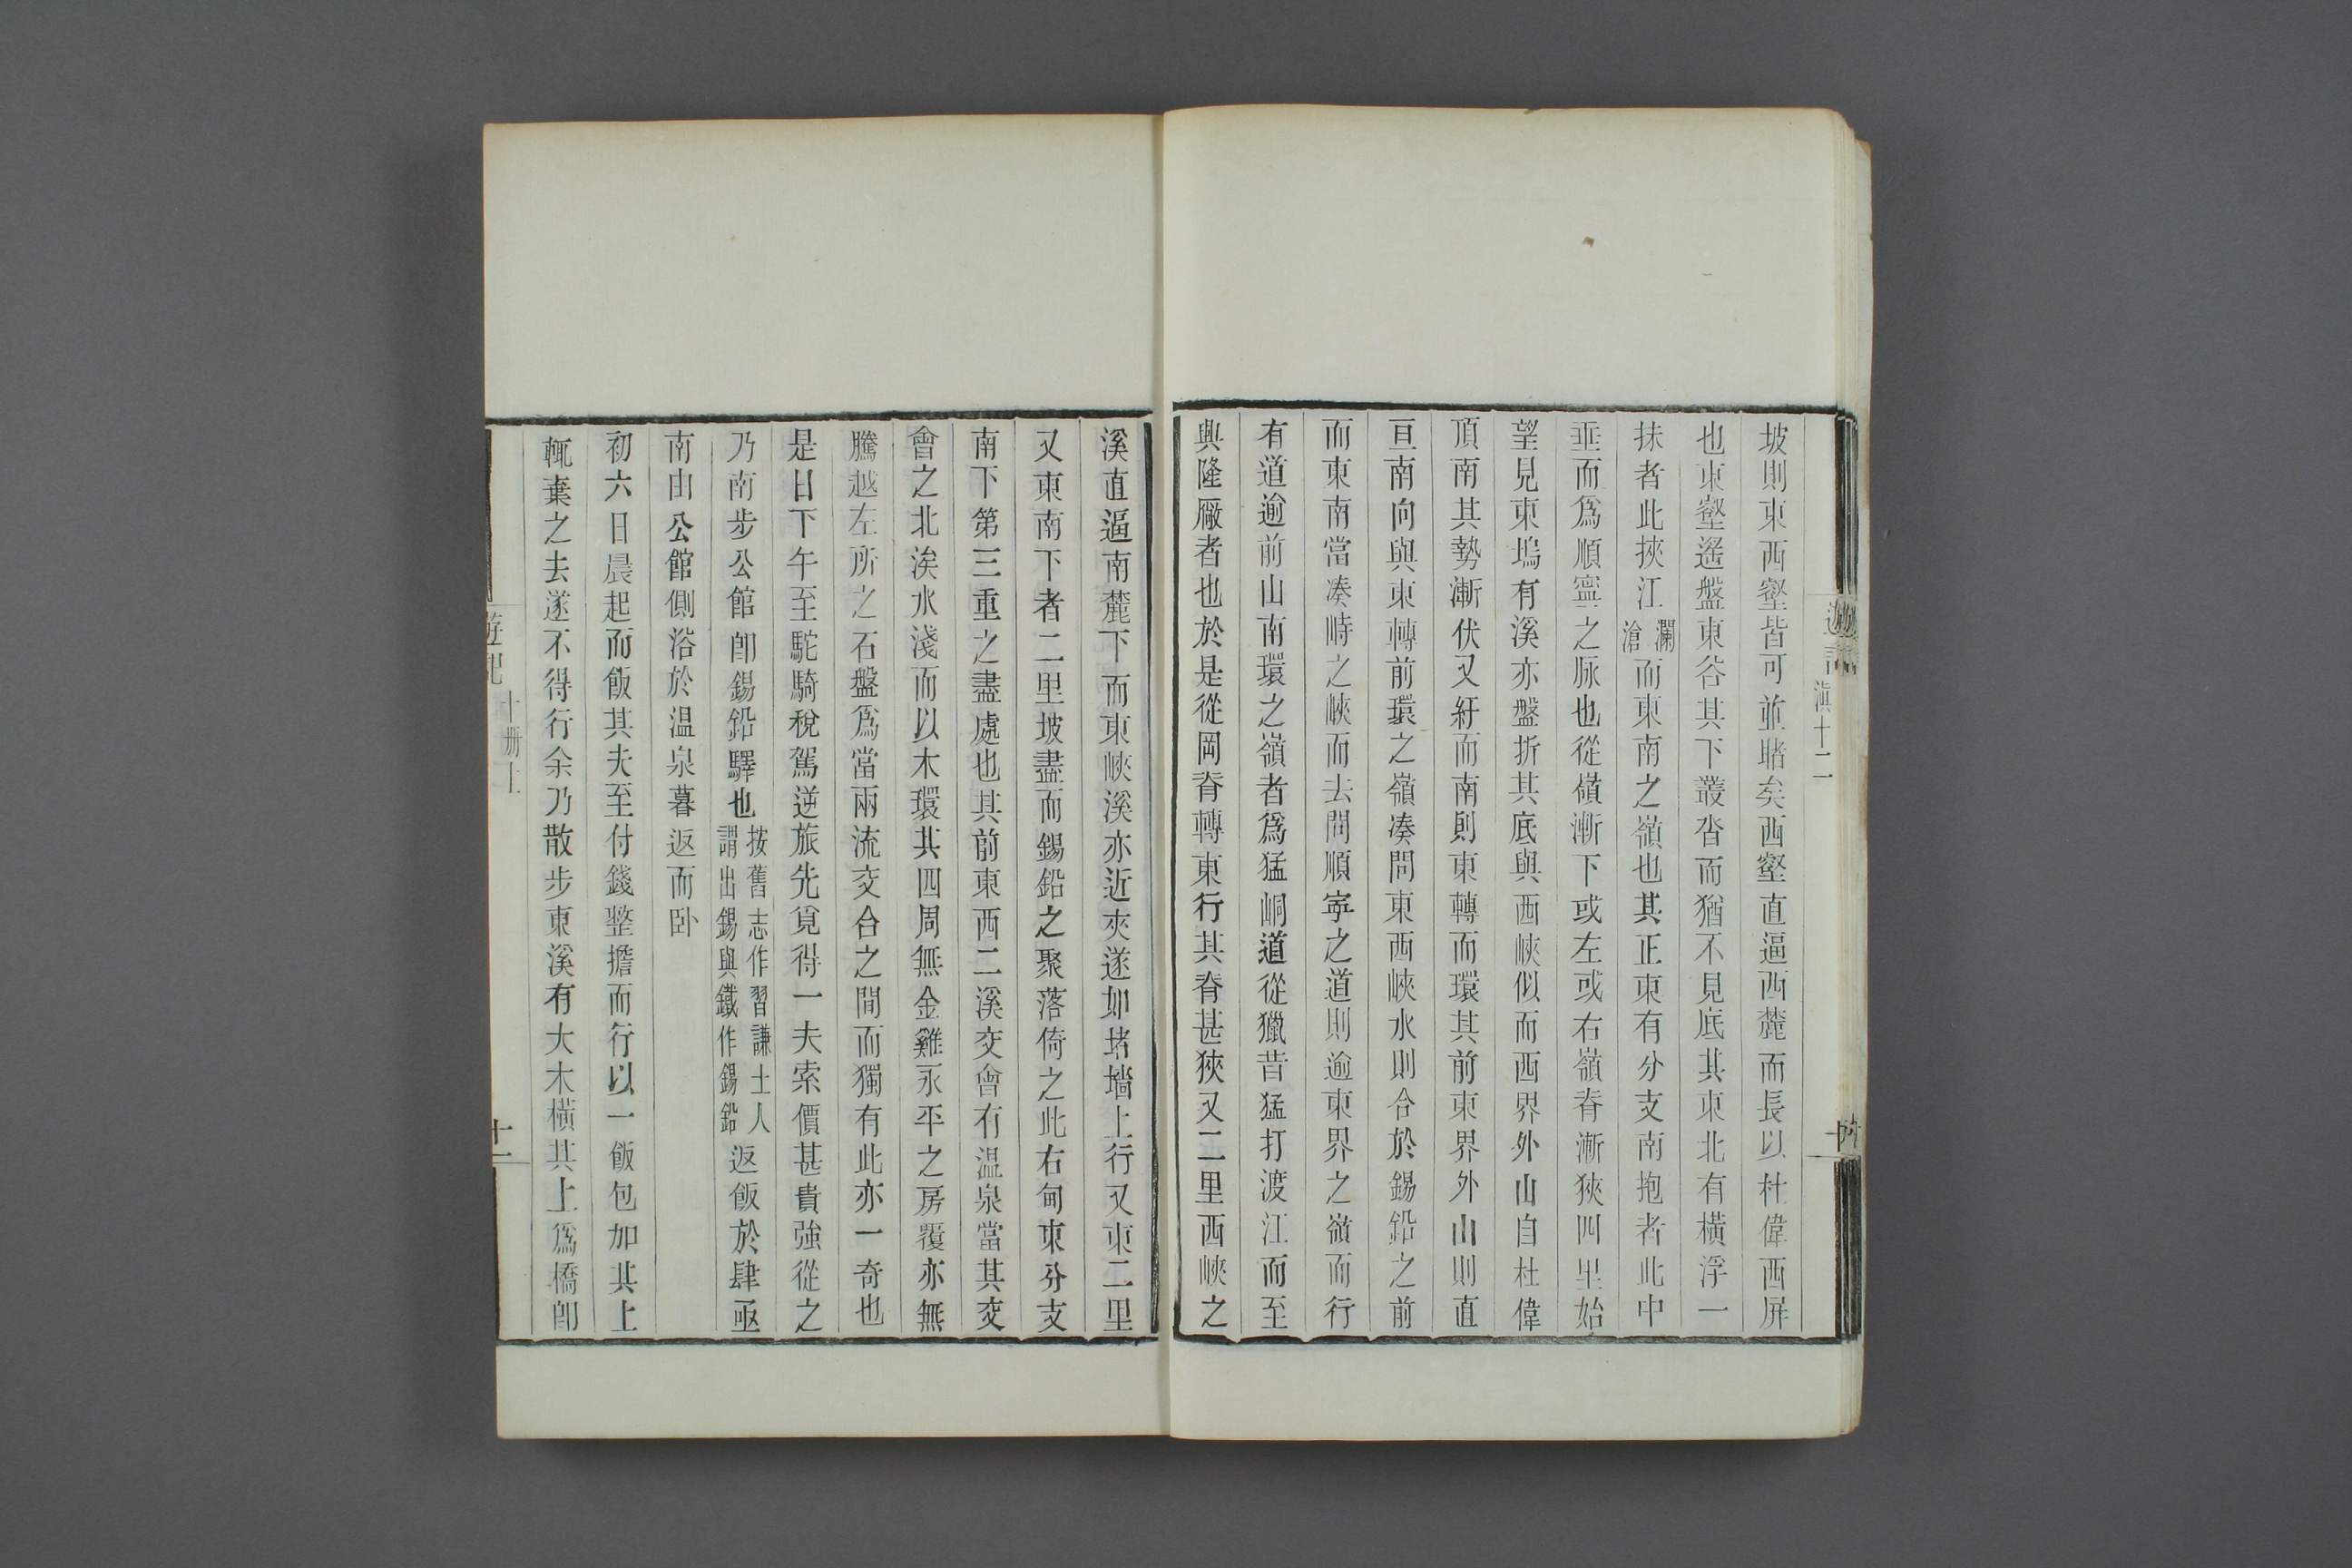 滇十二
坡則東西壑皆可並睹矣西壑直逼西麓而長以杜偉西屏
也東壑遙盤東谷其下叢沓而猶不見底其東北有橫浮一
抹者此挾江瀾滄而東南之嶺也其正東有分支南抱者此中
垂而爲順寧之脉也從嶺漸下或左或右嶺脊漸狹四里始
望見東塢有溪亦盤折其底與西峽似而西界外山自杜偉
頂南其勢漸伏又紆而南則東轉而環其前東界外山則直
亘南向與東轉前環之嶺凑問東西峽水則合於錫鉛之前
而東南當凑峙之峽而去問順寧之道則逾東界之嶺而行
有道逾前山南環之嶺者爲猛峒道從獵昔猛打渡江而至
興隆厰者也於是從岡脊轉東行其脊甚狹又二里西峽之
溪直逼南麓下而東峽溪亦近夾遂如堵墻上行又東二里
又東南下者二里坡盡而錫鉛之聚落倚之此右甸東分支
南下第三重之盡處也其前東西二溪交會有温泉當其交
會之北涘水淺而以木環其四周無金雞永平之房覆亦無
騰越左所之石盤爲當兩流交合之間而獨有此亦一奇也
是日下午至駝騎稅駕逆旅先覓得一夫索價甚貴強從之
乃南步公館卽錫鉛驛也按舊志作習謙土人謂出錫與鐵作錫鉛返飯於肆亟
南由公館側浴於温泉暮返而卧
初六日晨起而飯其夫至付錢整擔而行以一飯包加其上
輒棄之去遂不得行余乃散步東溪有大木橫其上爲橋卽
遊記
十册上
十一